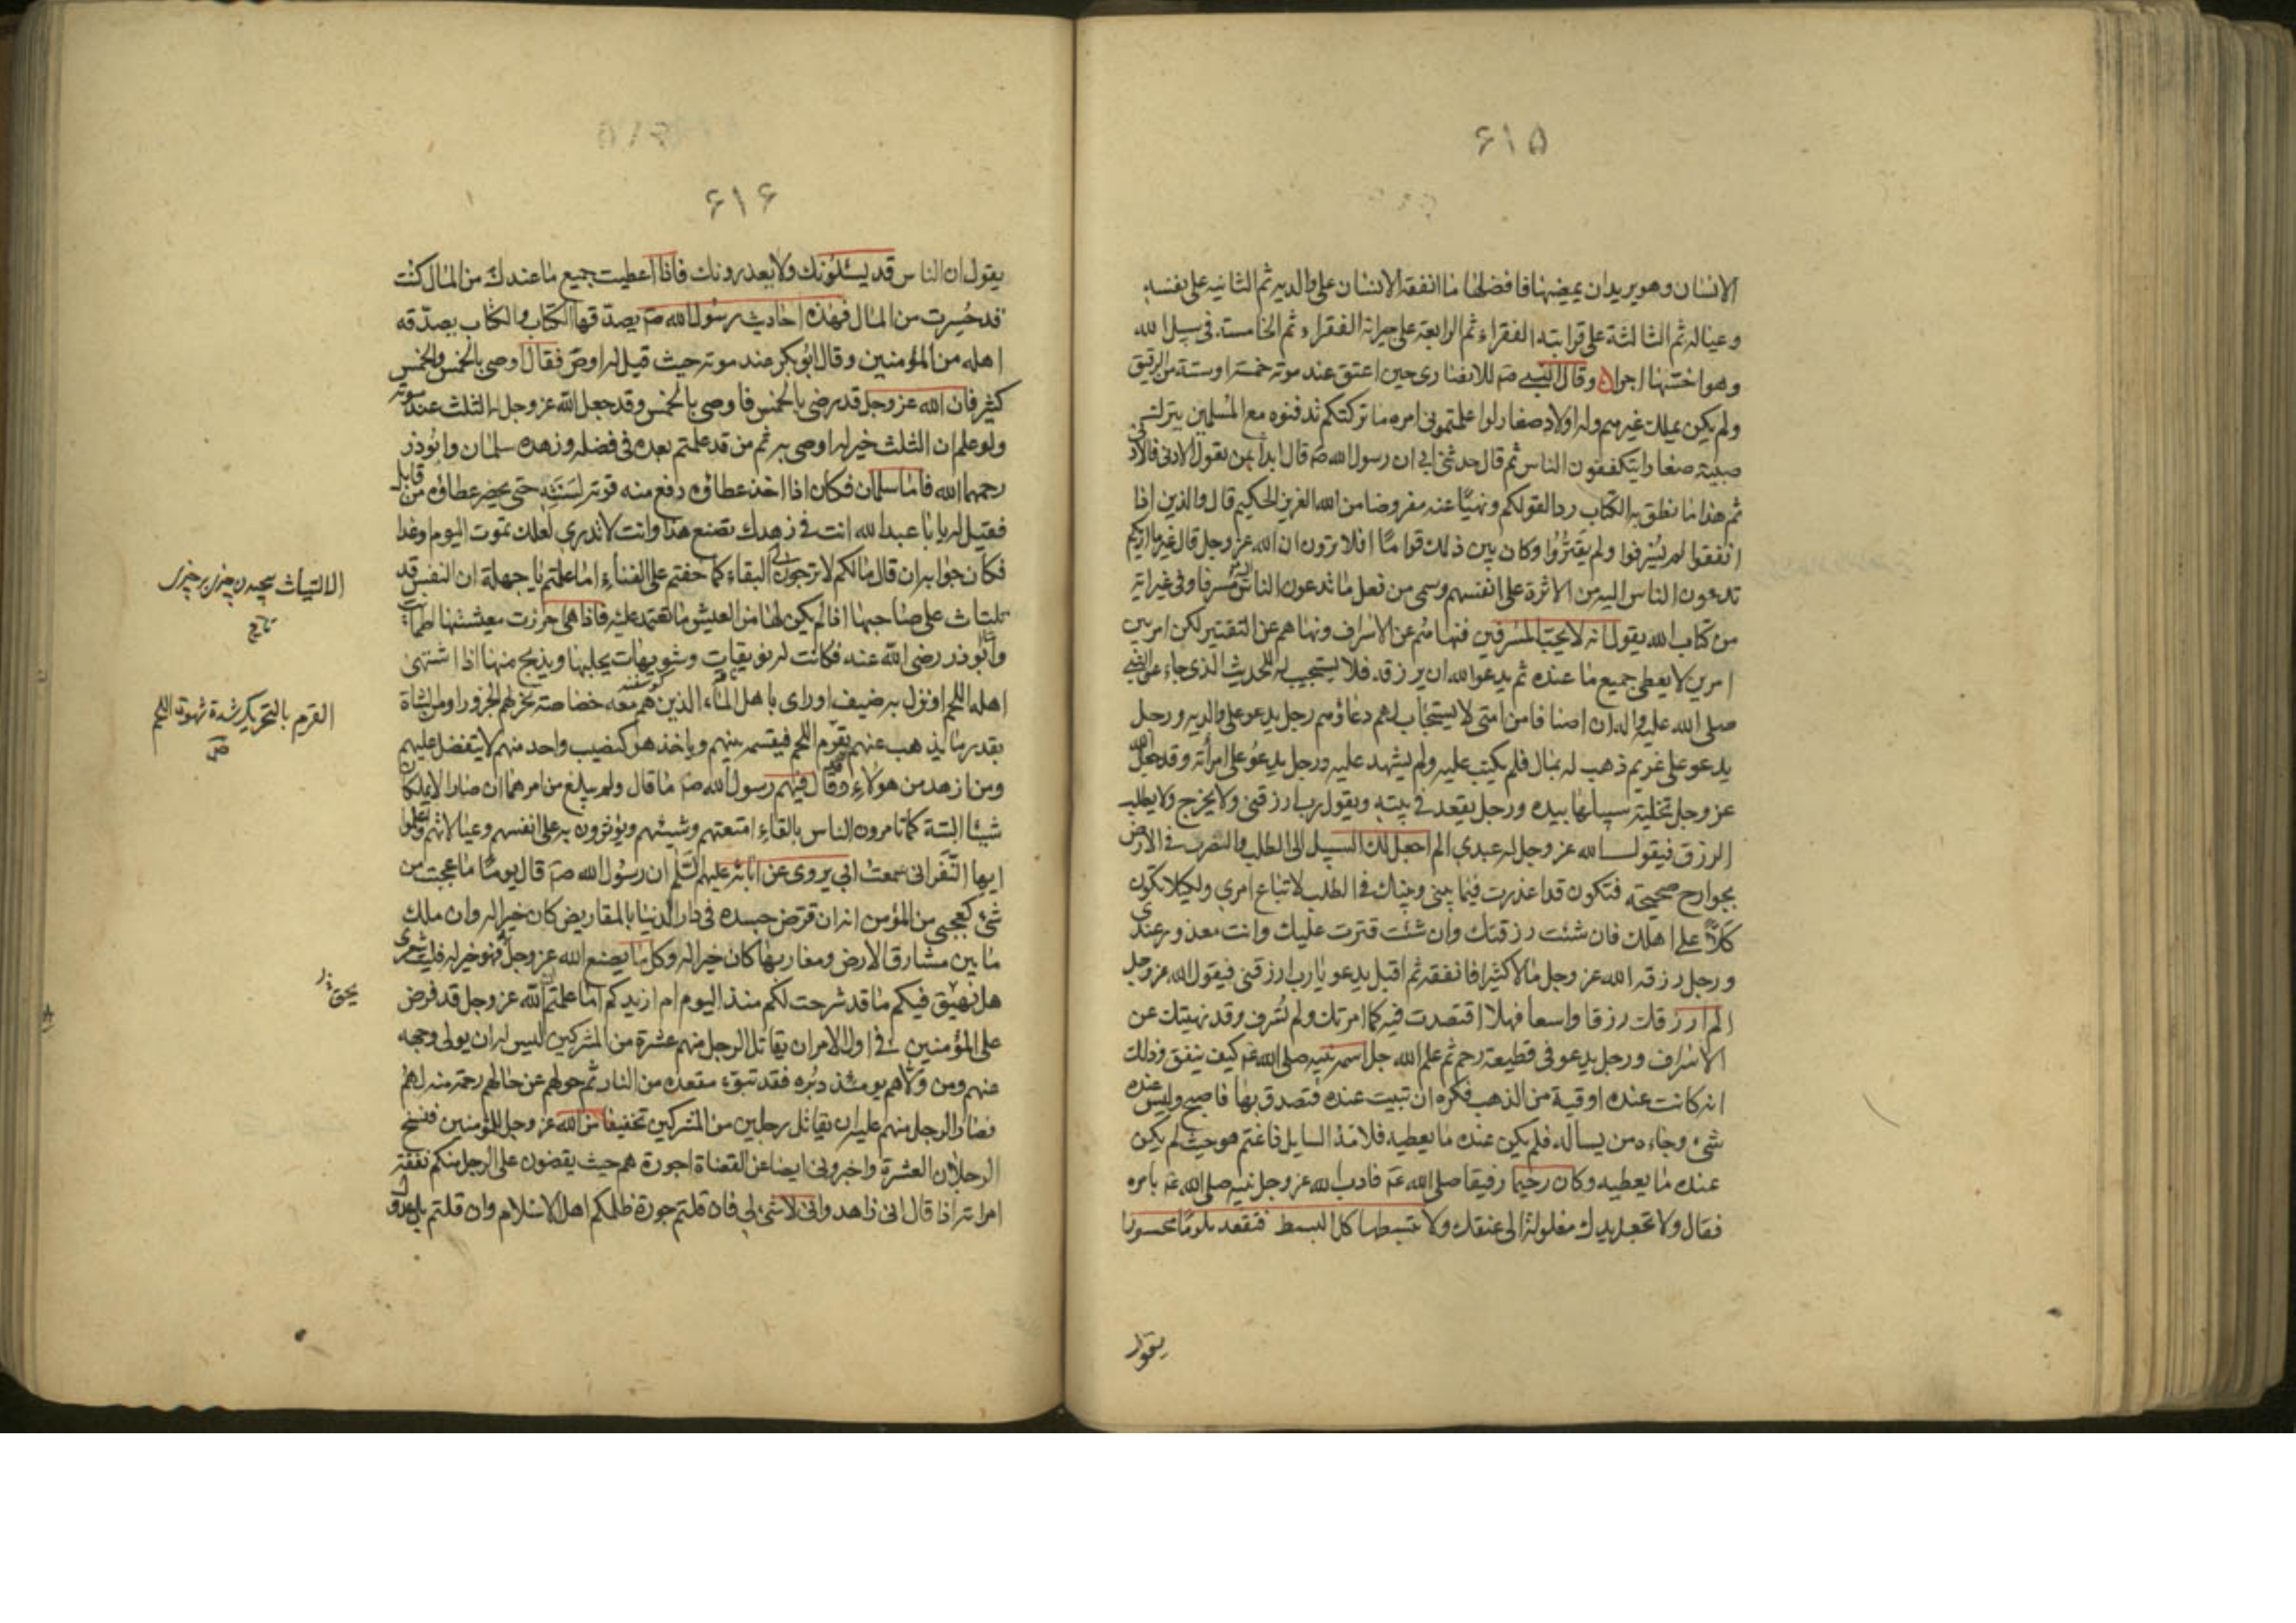 ۶۱۵
الانسان وهو يريد ان يمضيها فافضلها ما انفقه الانسان على والديه ثم الثانيه على نفسه
وعياله ثم الثالثة على قرابته الفقراء ثم الرابعة على جيرانه الفقراء ثم الخامسة فى سبيل الله
وهو اخسّها اجرا وقال النبي صم للانصارى حين اعتق عند موته خمسة او ستة من الرقيق
ولم يكن يملك غيرهم وله اولاد صغار لو اعلمتمونى امره ما تركتكم تدفنوه مع المسلمين يترك
صبية صغارا يتكففون الناس ثم قال حدثنى ابي ان رسول الله صم قال ابدأ بمن تعول الادنى فالادنى
ثم هذا ما نطق به الكتاب ردا لقولكم ونهيًا عنه مفروضا من الله العزيز الحكيم قال والذين اذا
انفقوا لم يُسْرفوا ولم يقتُرُوا وكان بين ذلك قواما افلا ترون ان الله عز وجل قال غير ما اريكم
تدعون الناس اليه من الاثرة على انفسهم وسمى من فعل ما تدعون الناس اليه مُسرفا وفى غير اية
من كتاب الله يقول انه لا يحبّ المسرفين فنهاهم عن الاسراف ونهاهم عن التقتير لكن امر بين
امرين لا يعطى جميع ما عنده ثم يدعو الله ان يرزقه فلا يستجيب له للحديث الذى جاء عن النبى
صلى الله عليه واله ان اصنافا من امتى لا يستجاب لهم دعاؤهم رجل يدعو على والديه ورجل
يدعو على غريم ذهب له بمال فلم يكتب عليه ولم يشهد عليه ورجل يدعُو على امرأته وقد جعل الله
عز وجل تخلية سبيلها بيده ورجل يقعد فى بيته ويقول رب ارزقنى ولا يخرج ولا يطلب
الرزق فيقول الله عز وجل له عبدى الم اجعل لك السبيل الى الطلب والتصرف فى الارض
بجوارح صحيحة فتكون قد اعذرت فيما بينى وبينك فى الطلب لاتباع امرى ولكيلا تكون
كلًّا على اهلك فان شئت رزقتك وان شئت قترت عليك وانت معذور عندى
ورجل رزقه الله عز وجل مالا كثيرا فانفقه ثم اقبل يدعو يا رب ارزقنى فيقول الله عز وجل
الم ارزقك رزقا واسعا فهلا اقتصدت فيه كما امرتك ولم تُسْرف وقد نهيتك عن
الاسراف ورجل يدعو فى قطيعة رحم ثم علم الله جل اسمه نبيه صلى الله عم كيف ينفق وذلك
انه كانت عنده اوقية من الذهب فكره ان تبيت عنده فتصدق بها فاصبح وليس عنده
شئ وجاءه من يساله فلم يكن عنده ما يعطيه فلامه السايل فاغتم هو حيث لم يكن
عنده ما يعطيه وكان رحيما رفيقا صلى الله عم فادب الله عز وجل نبيه صلى الله عم بامره
فقال ولا تجعل يدك مغلولة الى عنقك ولا تبسطها كل البسط فتقعد ملوما محسورا
يقول
۶۱۶
يقول ان الناس قد يسئلونك ولا يعذرونك فاذا اعطيت جميع ما عندك من المال كنت
قد حُسِرت من المال فهذه احاديث رسول الله صم يصدّقها الكتاب والكتاب يصدّقه
اهله من المؤمنين وقال ابُو بكر عند موته حيث قيل له اوص فقال اوصى بالخمس والخمس
كثير فان الله عز وجل قد رضى بالخمس فاوصى بالخمس وقد جعل الله عز وجل له الثلث عند موته
ولو علم ان الثلث خير له اوصى به ثم من قد علمتم بعده فى فضله وزهده سلمان وابُوذر
رحمهما الله فاما سلمان فكان اذا اخذ عطاؤه رفع منه قوته لِسَنَتِهِ حتى يحضر عطاؤه من قابل
فقيل له يا ابا عبد الله انت فى زهدك تصنع هذا وانت لا تدرى لعلك تموت اليوم او غدا
فكان جوابه ان قال ما لكم لا ترجون لى البقاء كما خفتم على الفناء اما علمتم يا جهلة ان النفس قد
تلتاث على صاحبها اذا لم يكن لها من العيش ما تعتمد عليه فاذا هى احرزت معيشتها اطمأنت
واما ابُوذر رضى الله عنه فكانت له نويقات وشويهات يحلبها ويذبح منها اذا اشتهى
اهله اللحم او نزل به ضيف او راى باهل الماء الذين هُم معه خصاصة نحر لهم الجزور او من الشاة
بقدر ما يذهب عنهم بقَرَم اللحم فيقسمه بينهم وياخذ هو كنصيب واحد منهم لا يتفضل عليهم
ومن ازهد من هولاء وقد قال فيهم رسول الله صم ما قال ولم يبلغ من امرهما ان صارا لا يملكان
شيئا البتة كما تامرون الناس بالقاء امتعتهم وشيئهم ويؤثرون به على انفسهم وعيالاتهم واعلموا
ايها النَّفَر انى سمعت ابى يروى عن ابائه عليهم السّلم ان رسُول الله صم قال يوما ما عجبت من
شئ كعجبى من المؤمن انه ان قرض جسده فى دار الدنيا بالمقاريض كان خيرا له وان ملك
ما بين مشارق الارض ومغاربها كان خيرا له وكل ما يصنع الله عز وجل به فهو خير له فليت شعرى
هل يحيق فيكم ما قد شرحت لكم منذ اليوم ام ازيدكم اما علمتم ان الله عز وجل قد فرض
على المؤمنين فى اول الامر ان يقاتل الرجل منهم عشرة من المشركين ليس له ان يولى وجهه
عنهم ومن ولّاهم يومئذ دبُره فقد تبوّء مقعده من النار ثم حولهم عن حالهم رحمة منه لهم
فصار الرجل منهم عليه ان يقاتل رجلين من المشركين تخفيفا من الله عز وجل للمؤمنين فنسخ
الرجلان العشرة واخبرونى ايضا عن القضاة اجورة هم حيث يقضون على الرجل منكم نفقة
امراته اذا قال انى زاهد وانى لا شئ لى فان قلتم جورة ظلمكم اهل الاسلام وان قلتم بل عدول
القرم بالتحريك شدة شهوة اللحم
ص